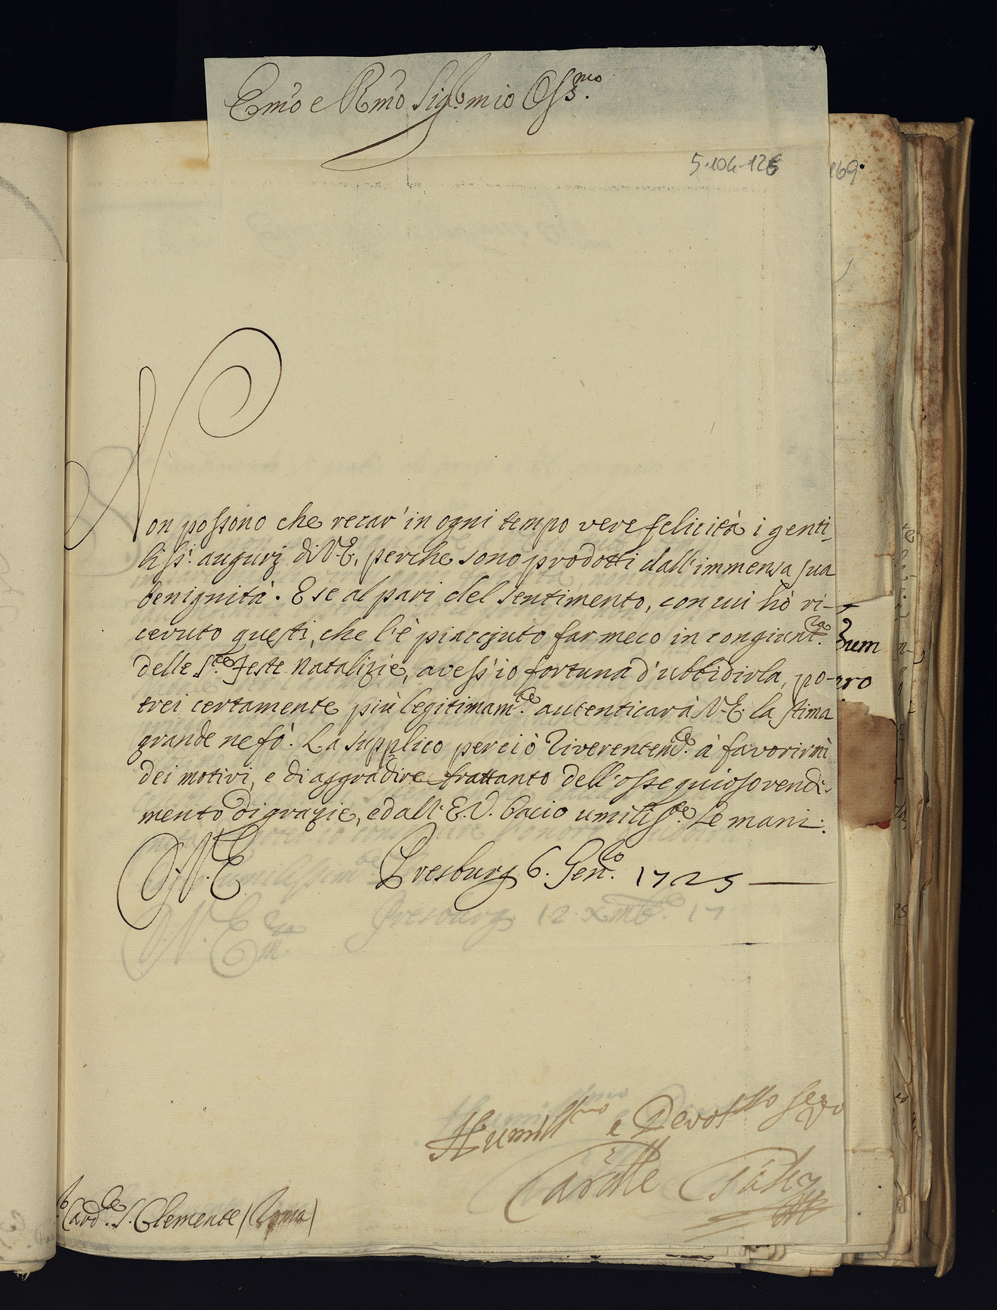 Em̃o e Rm̃o Sig.r mio Oss.mo
5-104-126
169.
Non possono che recar' in ogni tempo vere felicità i genti-
liss.i augurj di V.E., perche sono prodotti dall'immensa sua
benignità. E se al pari del sentimento, con cui hò ri-
cevuto questi, che l'è piacciuto far meco in congiunt.ra
delle S.te Feste Natalizie, avess'io fortuna d'ubbidirla, po-
trei certamente più legitimam.te autenticar à V.E. la stima
grande ne fò. La supplico perciò riverentem.te à favorirmi
dei motivi, e di aggradire frattanto dell'ossequioso rendi-
mento di grazie, ed all'E.V. bacio umiliss.te le mani.
D.V.E. Presburg 6. Gen.o 1725
Humill.mo e Devot.mo Servo
S. Clemente (Roma)